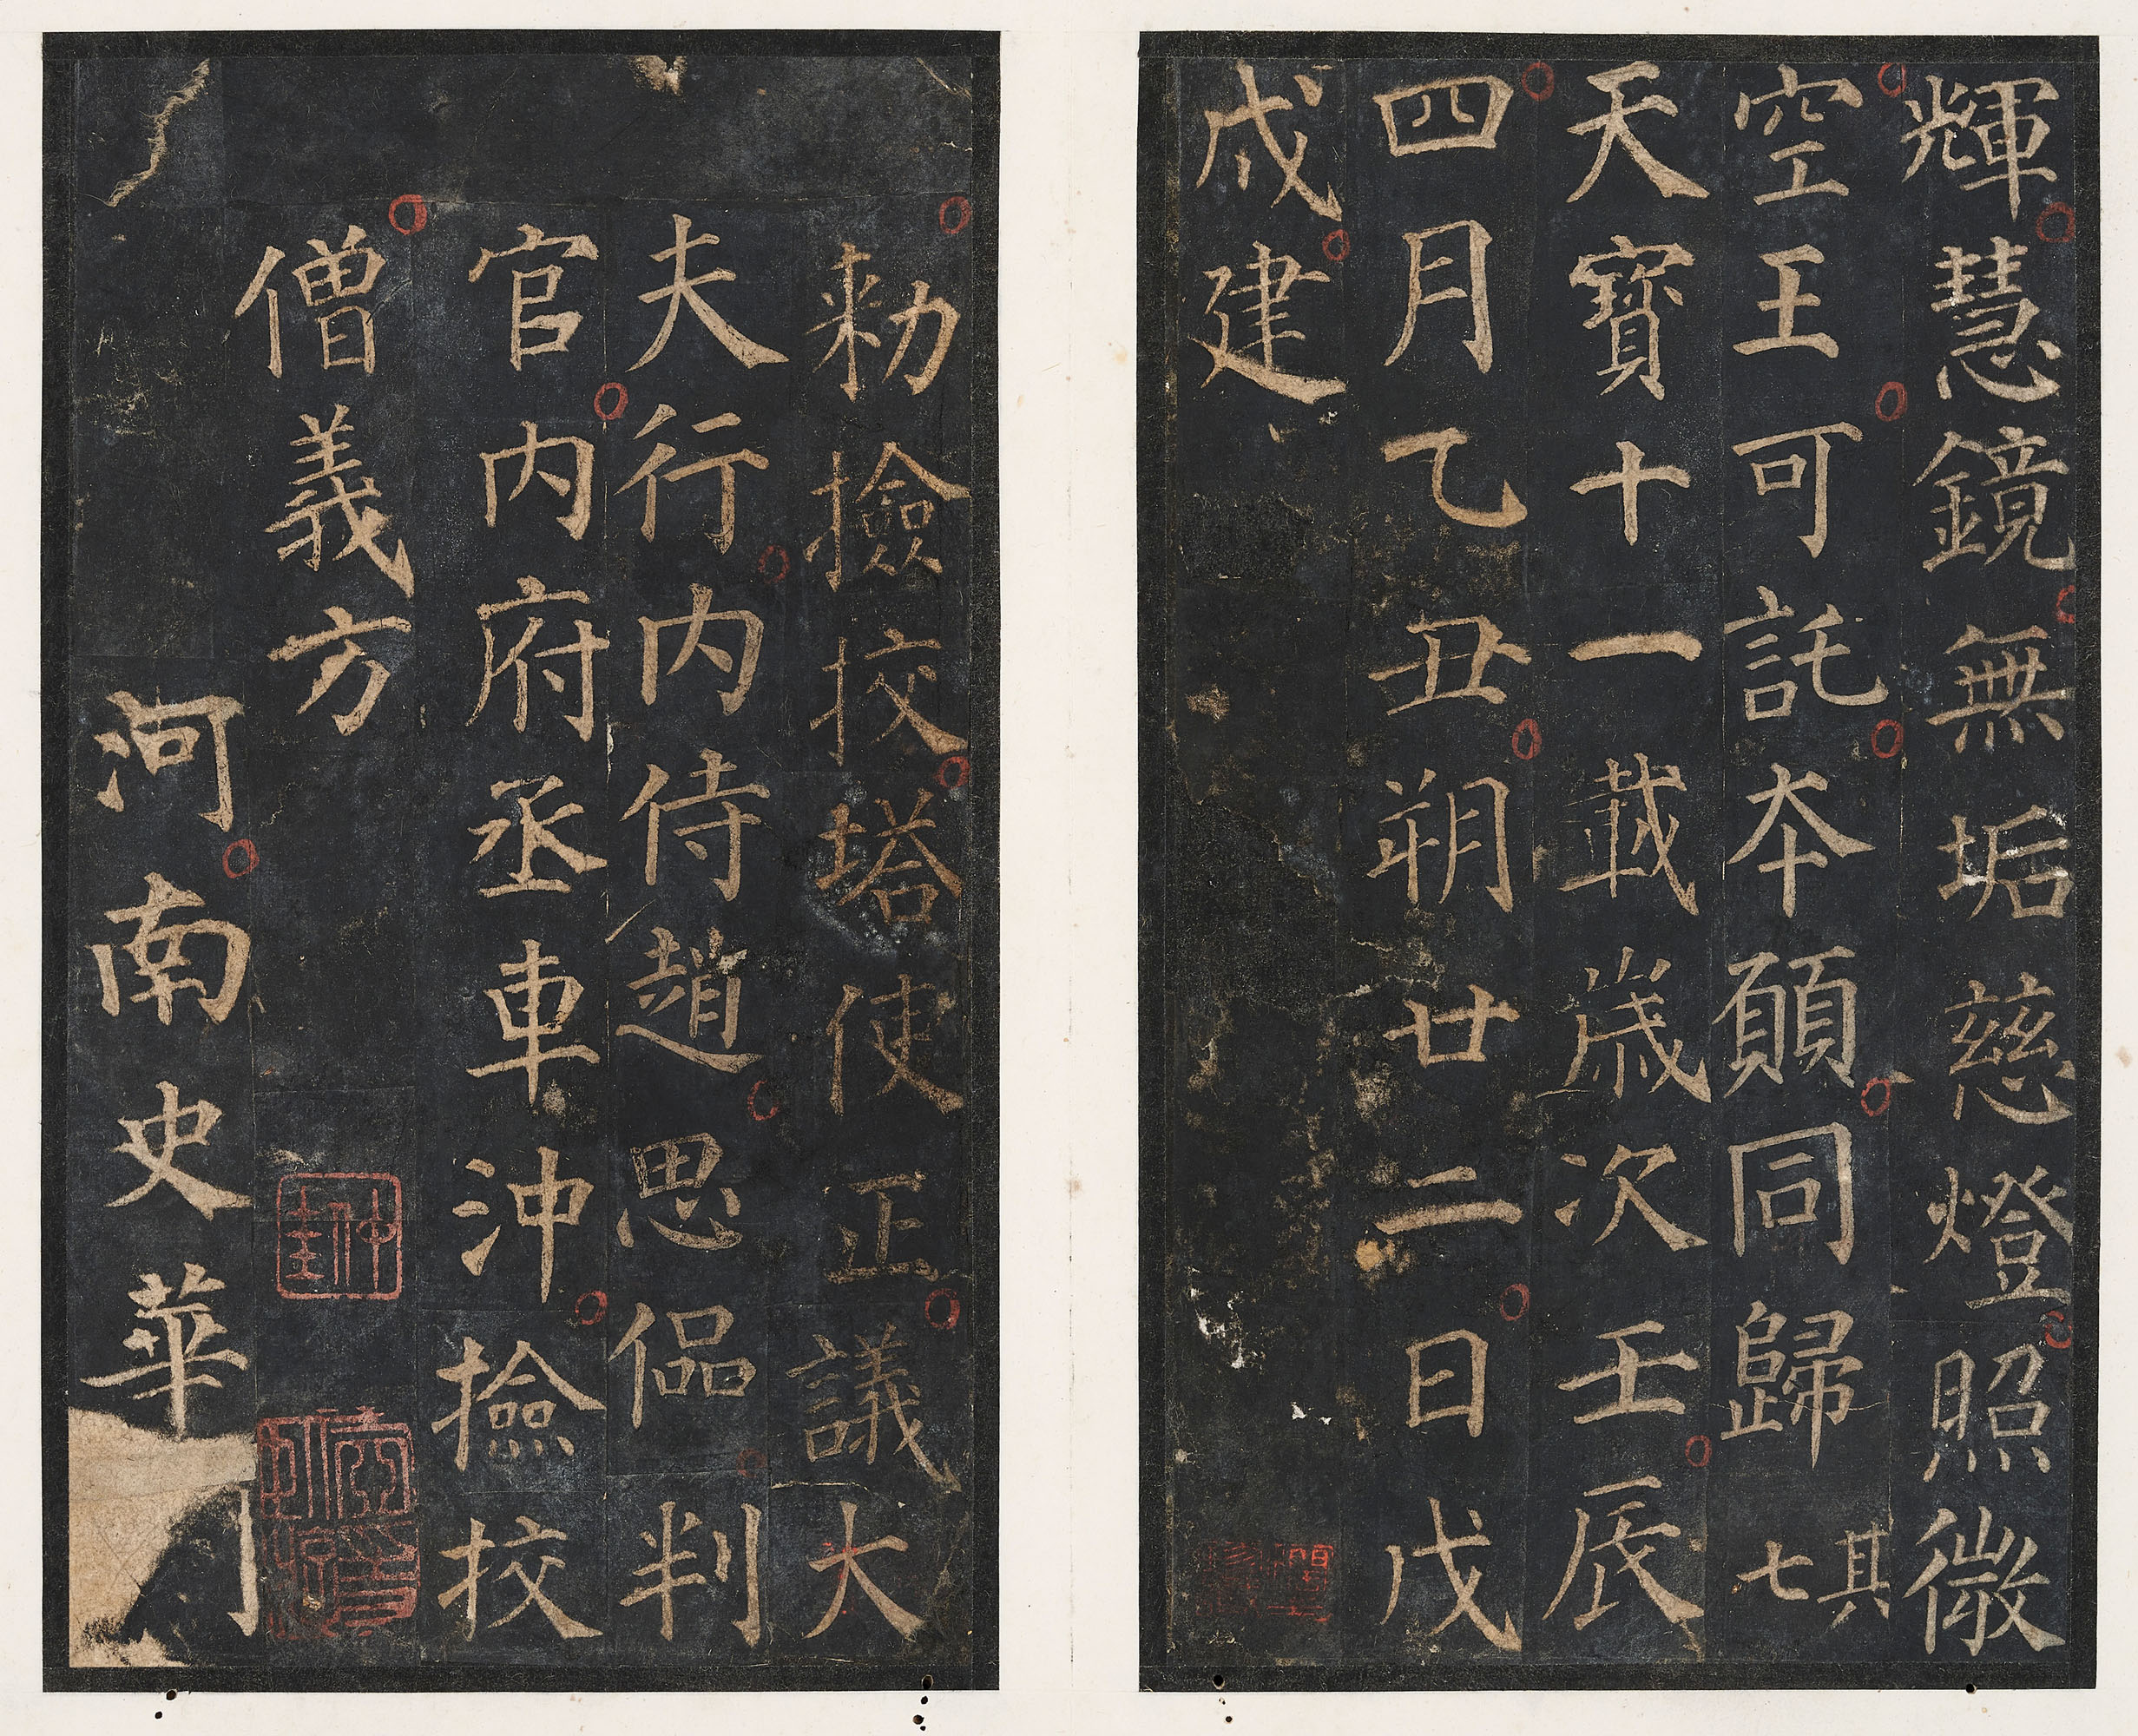 輝慧鏡無垢慈燈照微
空王可託本願同歸其七
天寶十一載歲次壬辰
四月乙丑朔廿二日戊
戌建
勑撿挍塔使正議大
夫行内侍趙思侣判
官内府丞車沖撿挍
僧義方
河南史華